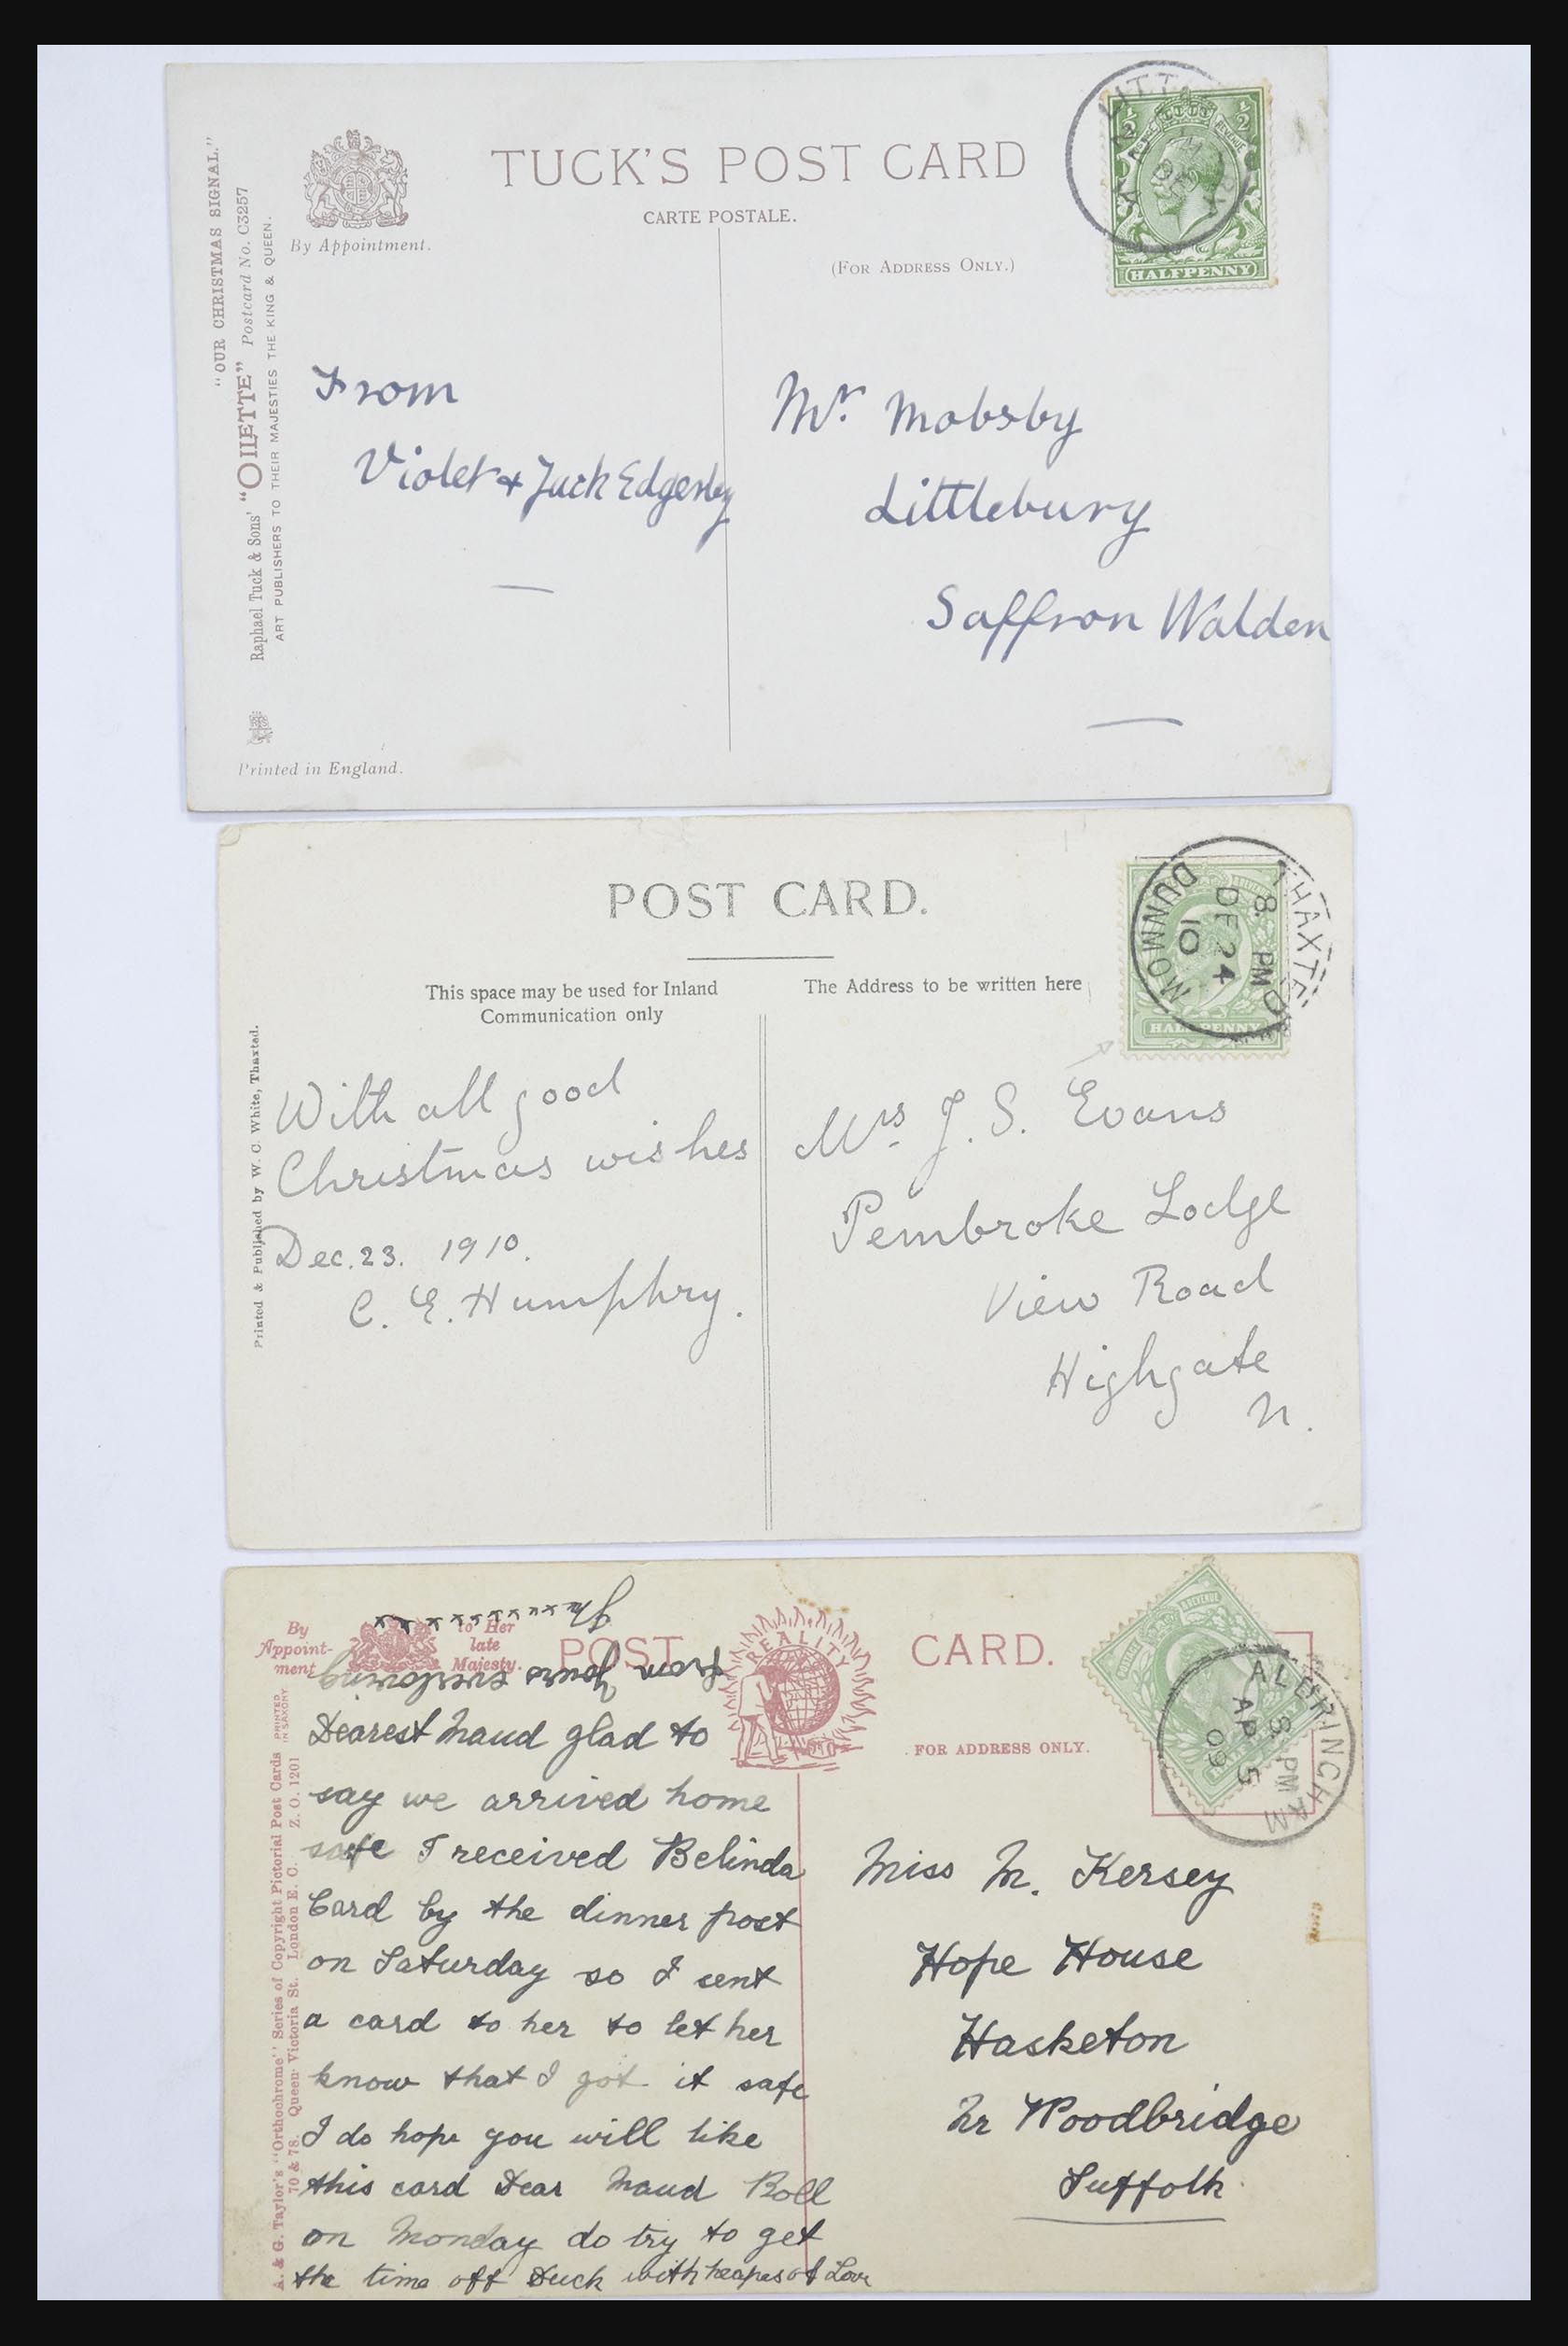 TUCK'S POST CARD
CARTE POSTALE.
(FOR ADDRESS ONLY.)
By Appointment.
"OUR CHRISTMAS SIGNAL."
Raphael Tuck & Sons' "OILETTE" Postcard No. C3257
ART PUBLISHERS TO THEIR MAJESTIES THE KING & QUEEN.
Printed in England.
HALFPENNY
From
Violet & Jack Edgerley
Mr. Mobsby
Littlebury
Saffron Walden
POST CARD.
This space may be used for Inland
Communication only
The Address to be written here
Printed & Published by W. C. White, Thaxted.
THAXTE
8 PM
DE 24
10
DUNMOW
HALFPENNY
With all good
Christmas wishes
Dec. 23. 1910.
C. E. Humphry.
Mrs J. S. Evans
Pembroke Lodge
View Road
Highgate
N.
By Appointment to Her late Majesty.
POST CARD.
REALITY
FOR ADDRESS ONLY.
A. & G. Taylor's "Orthochrome" Series of Copyright Pictorial Post Cards PRINTED IN SAXONY
70 & 78. Queen Victoria St. London E. C. Z. O. 1201
ALDRINGHAM
8 PM
AP 5
09
Dearest Maud glad to
say we arrived home
safe I received Belinda
Card by the dinner post
on Saturday so I sent
a card to her to let her
know that I got it safe
I do hope you will like
this card Dear Maud Roll
on Monday do try to get
the time off Duck with heapes of Love
from yours
Miss M. Kersey
Hope House
Hasketon
Nr Woodbridge
Suffolk